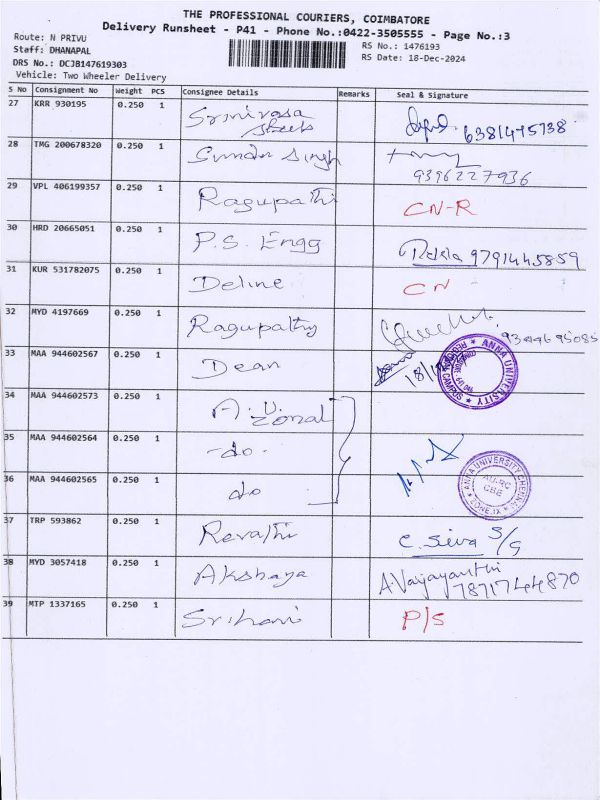 THE PROFESSIONAL COURIERS, COIMBATORE
Delivery Runsheet - P41 - Phone No.:0422-3505555 - Page No.:3
Route: N PRIVU
RS No.: 1476193
Staff: DHANAPAL
RS Date: 18-Dec-2024
DRS No.: DCJB147619303
Vehicle: Two Wheeler Delivery
S No Consignment No Weight PCS Consignee Details Remarks Seal & Signature
27 KRR 930195 0.250 1 Srinivasa 6381475738
28 TMG 200678320 0.250 1 Sundar Singh
9396227936
29 VPL 406199357 0.250 1 Ragupathi CN-R
30 HRD 20665051 0.250 1 P.S. Engg 9791445859
31 KUR 531782075 0.250 1 Deline CN
32 MYD 4197669 0.250 1 Ragupathy 9344695085
33 MAA 944602567 0.250 1 Dean 18/12
ANNA UNIVERSITY
34 MAA 944602573 0.250 1 A.U. Zonal
35 MAA 944602564 0.250 1 -do-
36 MAA 944602565 0.250 1 do
ANNA UNIVERSITY CHENNAI
AU-RC
CBE
ZONE IX
37 TRP 593862 0.250 1 Revathi C. Siva S/G
38 MYD 3057418 0.250 1 Akshaya A. Vaijayanthi
7871744870
39 MTP 1337165 0.250 1 Srihari P/S